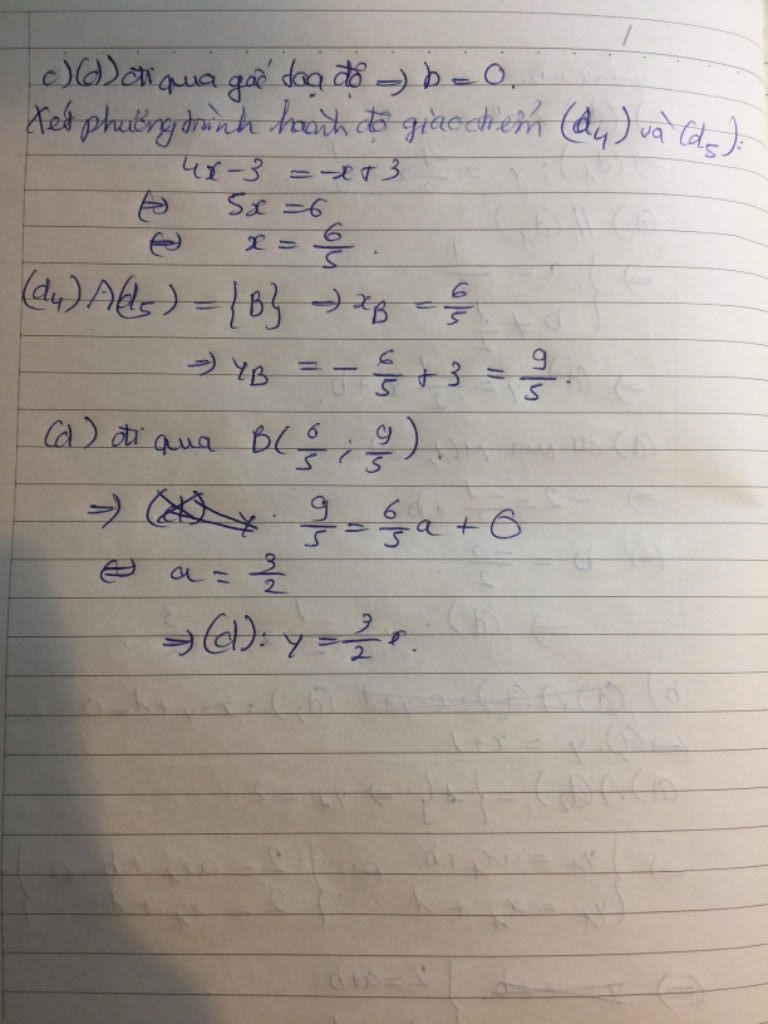 c) (d) đi qua gốc toạ độ ⇒ b = 0.
Xét phương trình hoành độ giao điểm (d₄) và (d₅):
4x - 3 = -x + 3
⇔ 5x = 6
⇔ x = 6/5.
(d₄) ∩ (d₅) = {B} ⇒ x_B = 6/5
⇒ y_B = - 6/5 + 3 = 9/5.
(d) đi qua B(6/5 ; 9/5).
⇒ 9/5 = 6/5 a + 0
⇔ a = 3/2
⇒ (d): y = 3/2 x.